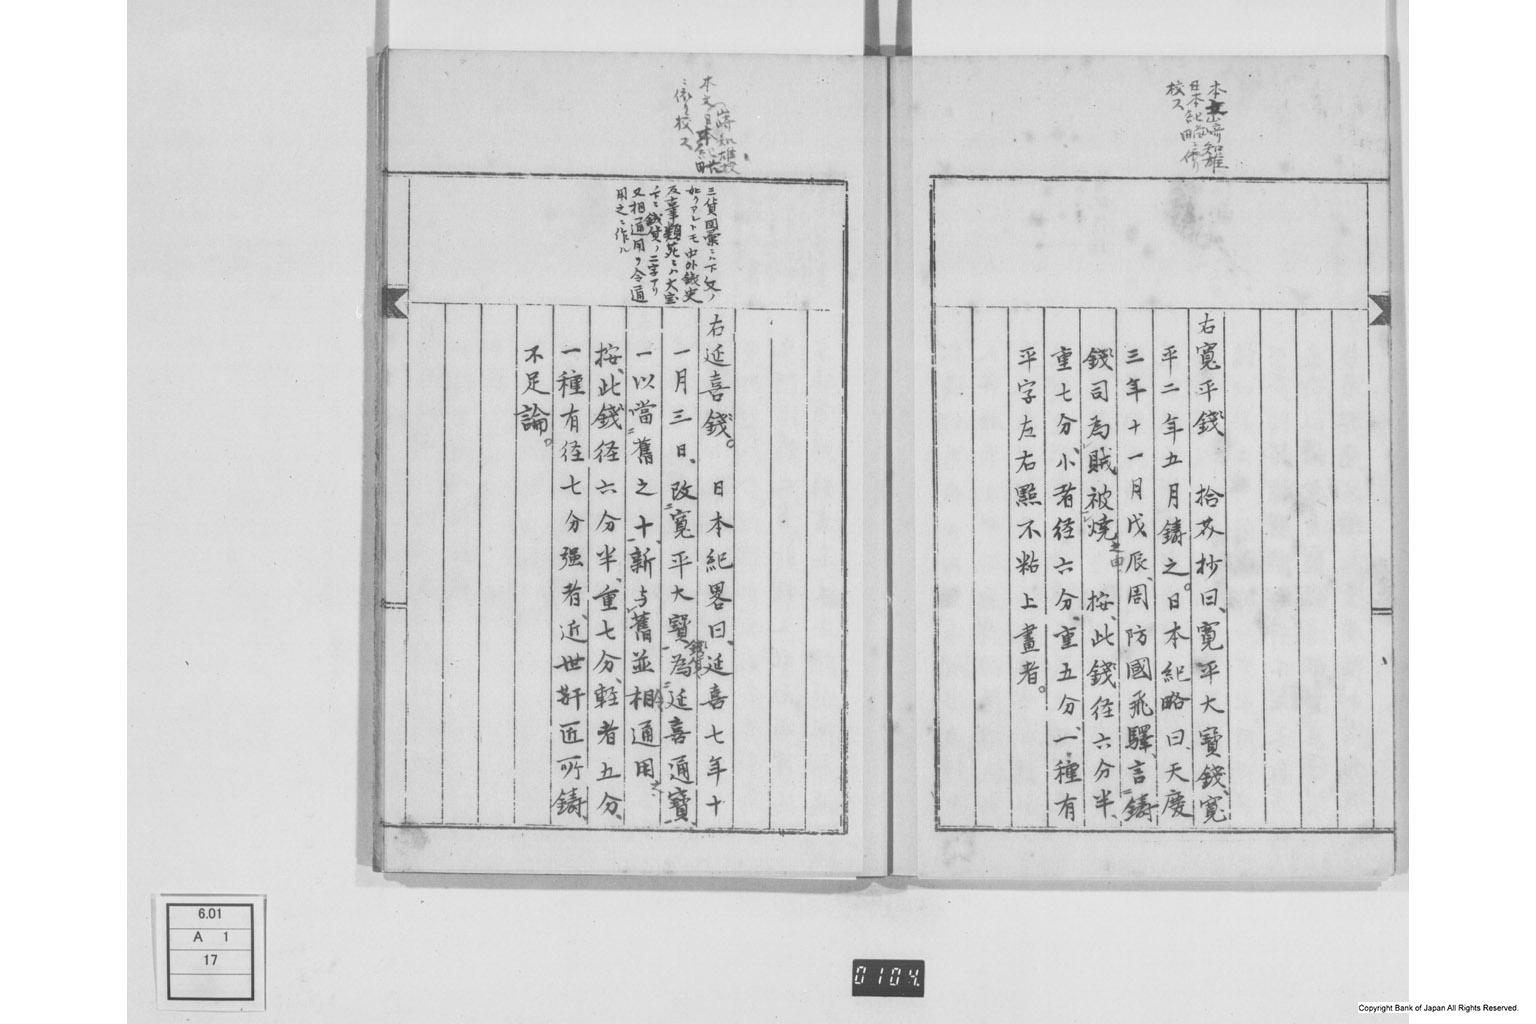 本文山崎知雄
日本紀略ニ依リ
校ス
右寛平錢　拾芥抄曰、寛平大寳錢、寛
平二年五月鑄之。日本紀略曰、天慶
三年十一月戊辰、周防國飛驛、言鑄
錢司為賊被燒之由　按、此錢径六分半、
重七分、小者径六分、重五分、一種有
平字左右點不粘上畫者。
本文山崎知雄校
日本紀略
ニ依リ校ス
三貨圖彙ニハ下文ノ
如クアレトモ中外錢史
及事類苑ニハ大宝
下ニ錢貨ノ二字アリ
又相通用ヲ令通
用之ニ作ル
右延喜錢。　日本紀畧曰、延喜七年十
一月三日、改寛平大寳錢貨為延喜通寳、
一以當舊之十、新与舊並相令通用之
按、此錢径六分半、重七分、輕者五分、
一種有径七分强者、近世奸匠所鑄、
不足論。
6.01
A 1
17
0104.
Copyright Bank of Japan All Rights Reserved.